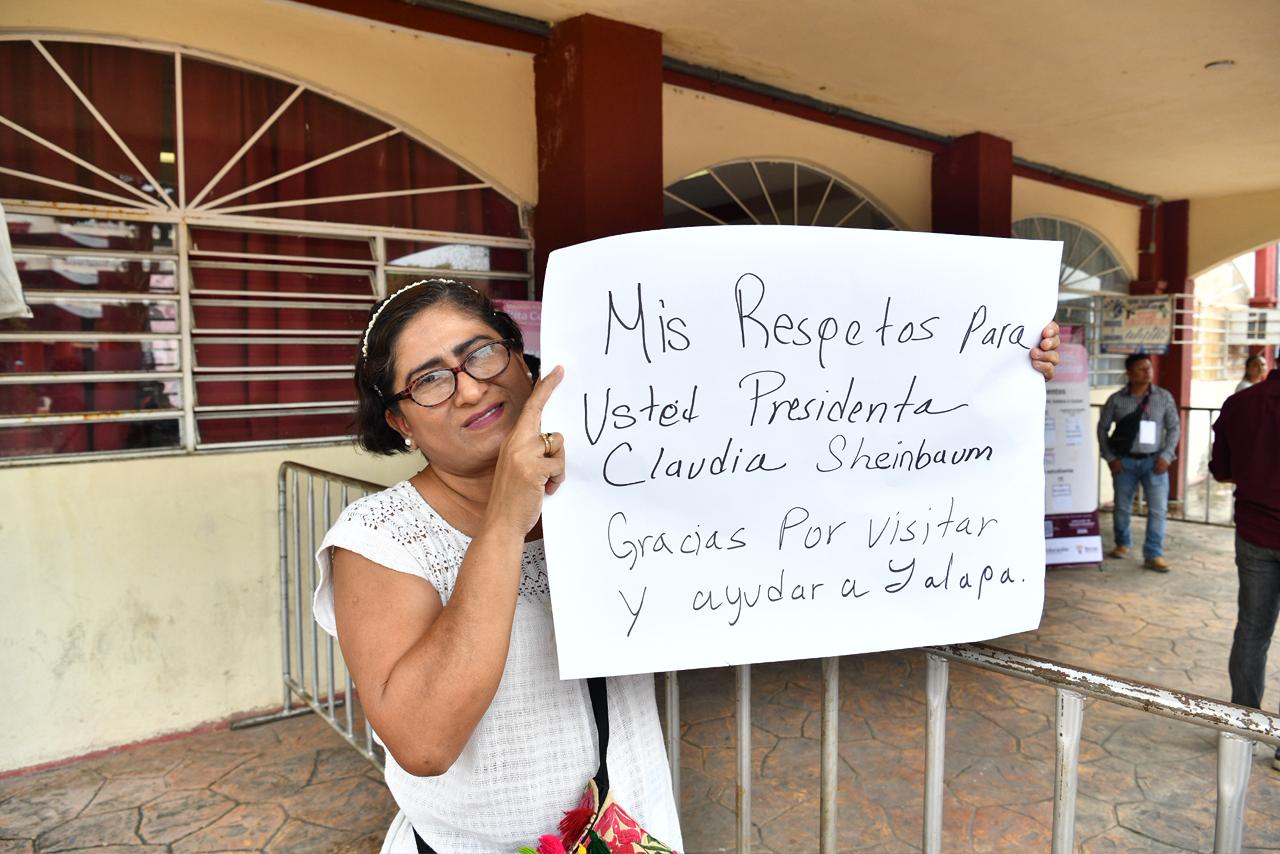 Mis Respetos Para
Usted Presidenta
Claudia Sheinbaum
Gracias Por visitar
y ayudar a Yalapa.